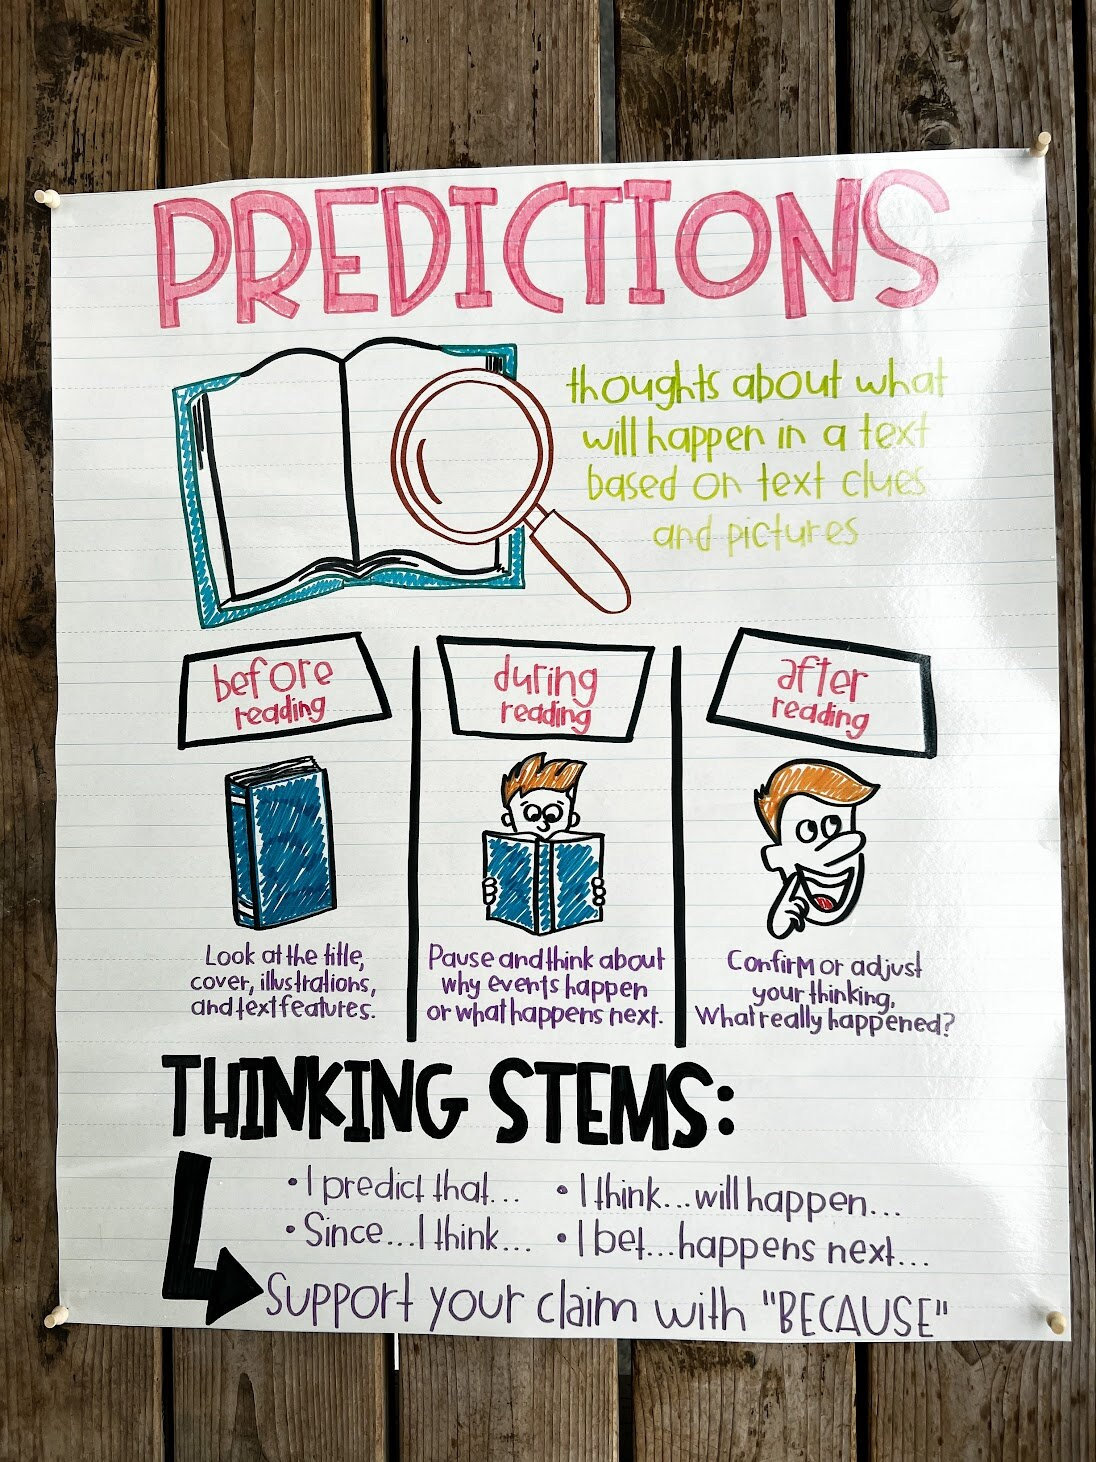 PREDICTIONS
thoughts about what
will happen in a text
based on text clues
and pictures
before
reading
Look at the title,
cover, illustrations,
and text features.
during
reading
Pause and think about
why events happen
or what happens next.
after
reading
Confirm or adjust
your thinking.
What really happened?
THINKING STEMS:
• I predict that...
• Since...I think...
• I think...will happen...
• I bet...happens next...
Support your claim with "BECAUSE"